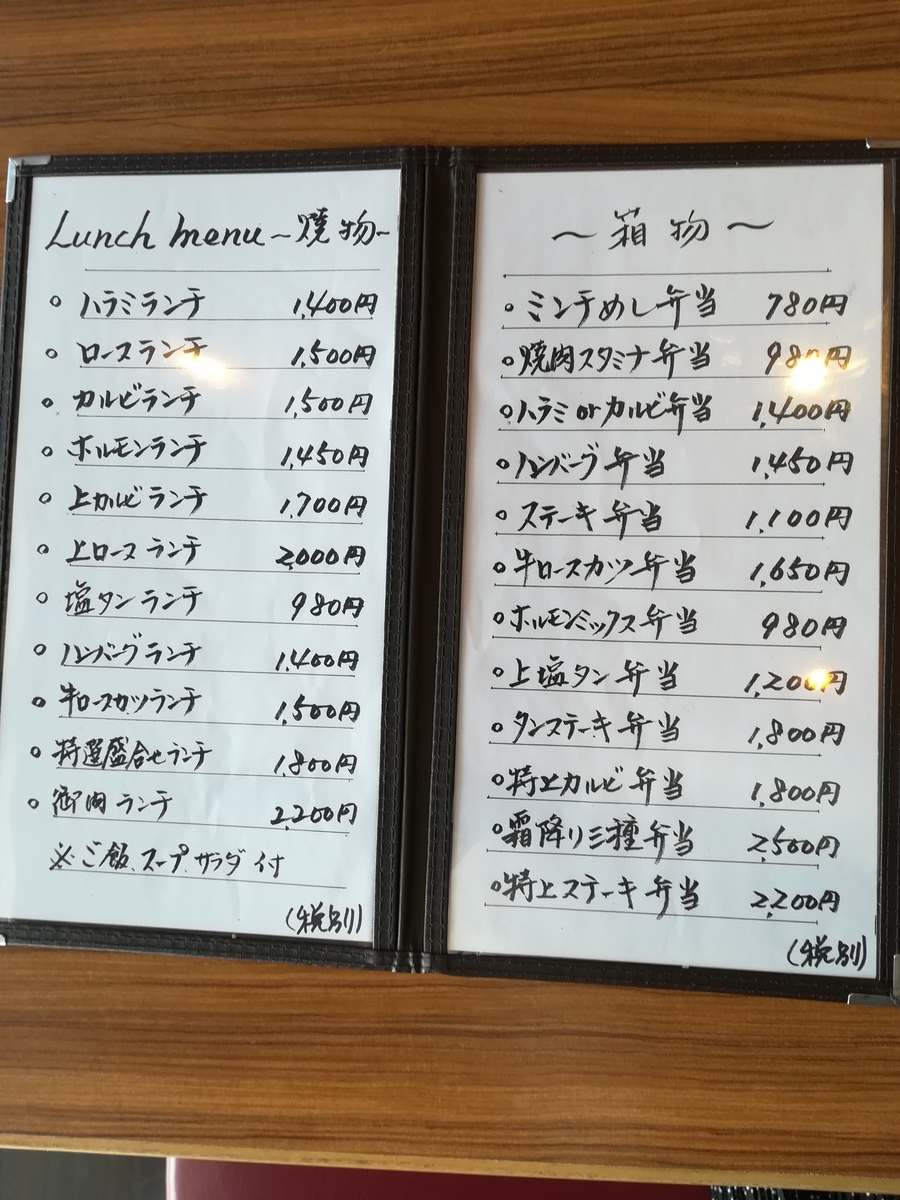 Lunch menu ～焼物～
○ ハラミランチ 1,400円
○ ロースランチ 1,500円
○ カルビランチ 1,500円
○ ホルモンランチ 1,450円
○ 上カルビランチ 1,700円
○ 上ロースランチ 2,000円
○ 塩タンランチ 980円
○ ハンバーグランチ 1,400円
○ 牛ロースカツランチ 1,500円
○ 特選盛合せランチ 1,800円
○ 御肉ランチ 2,200円
※ご飯、スープ、サラダ付
(税別)
～箱物～
○ ミンチめし弁当 780円
○ 焼肉スタミナ弁当 980円
○ ハラミorカルビ弁当 1,400円
○ ハンバーグ弁当 1,450円
○ ステーキ弁当 1,100円
○ 牛ロースカツ弁当 1,650円
○ ホルモンミックス弁当 980円
○ 上塩タン弁当 1,200円
○ タンステーキ弁当 1,800円
○ 特上カルビ弁当 1,800円
○ 霜降り三種弁当 2,500円
○ 特上ステーキ弁当 2,200円
(税別)